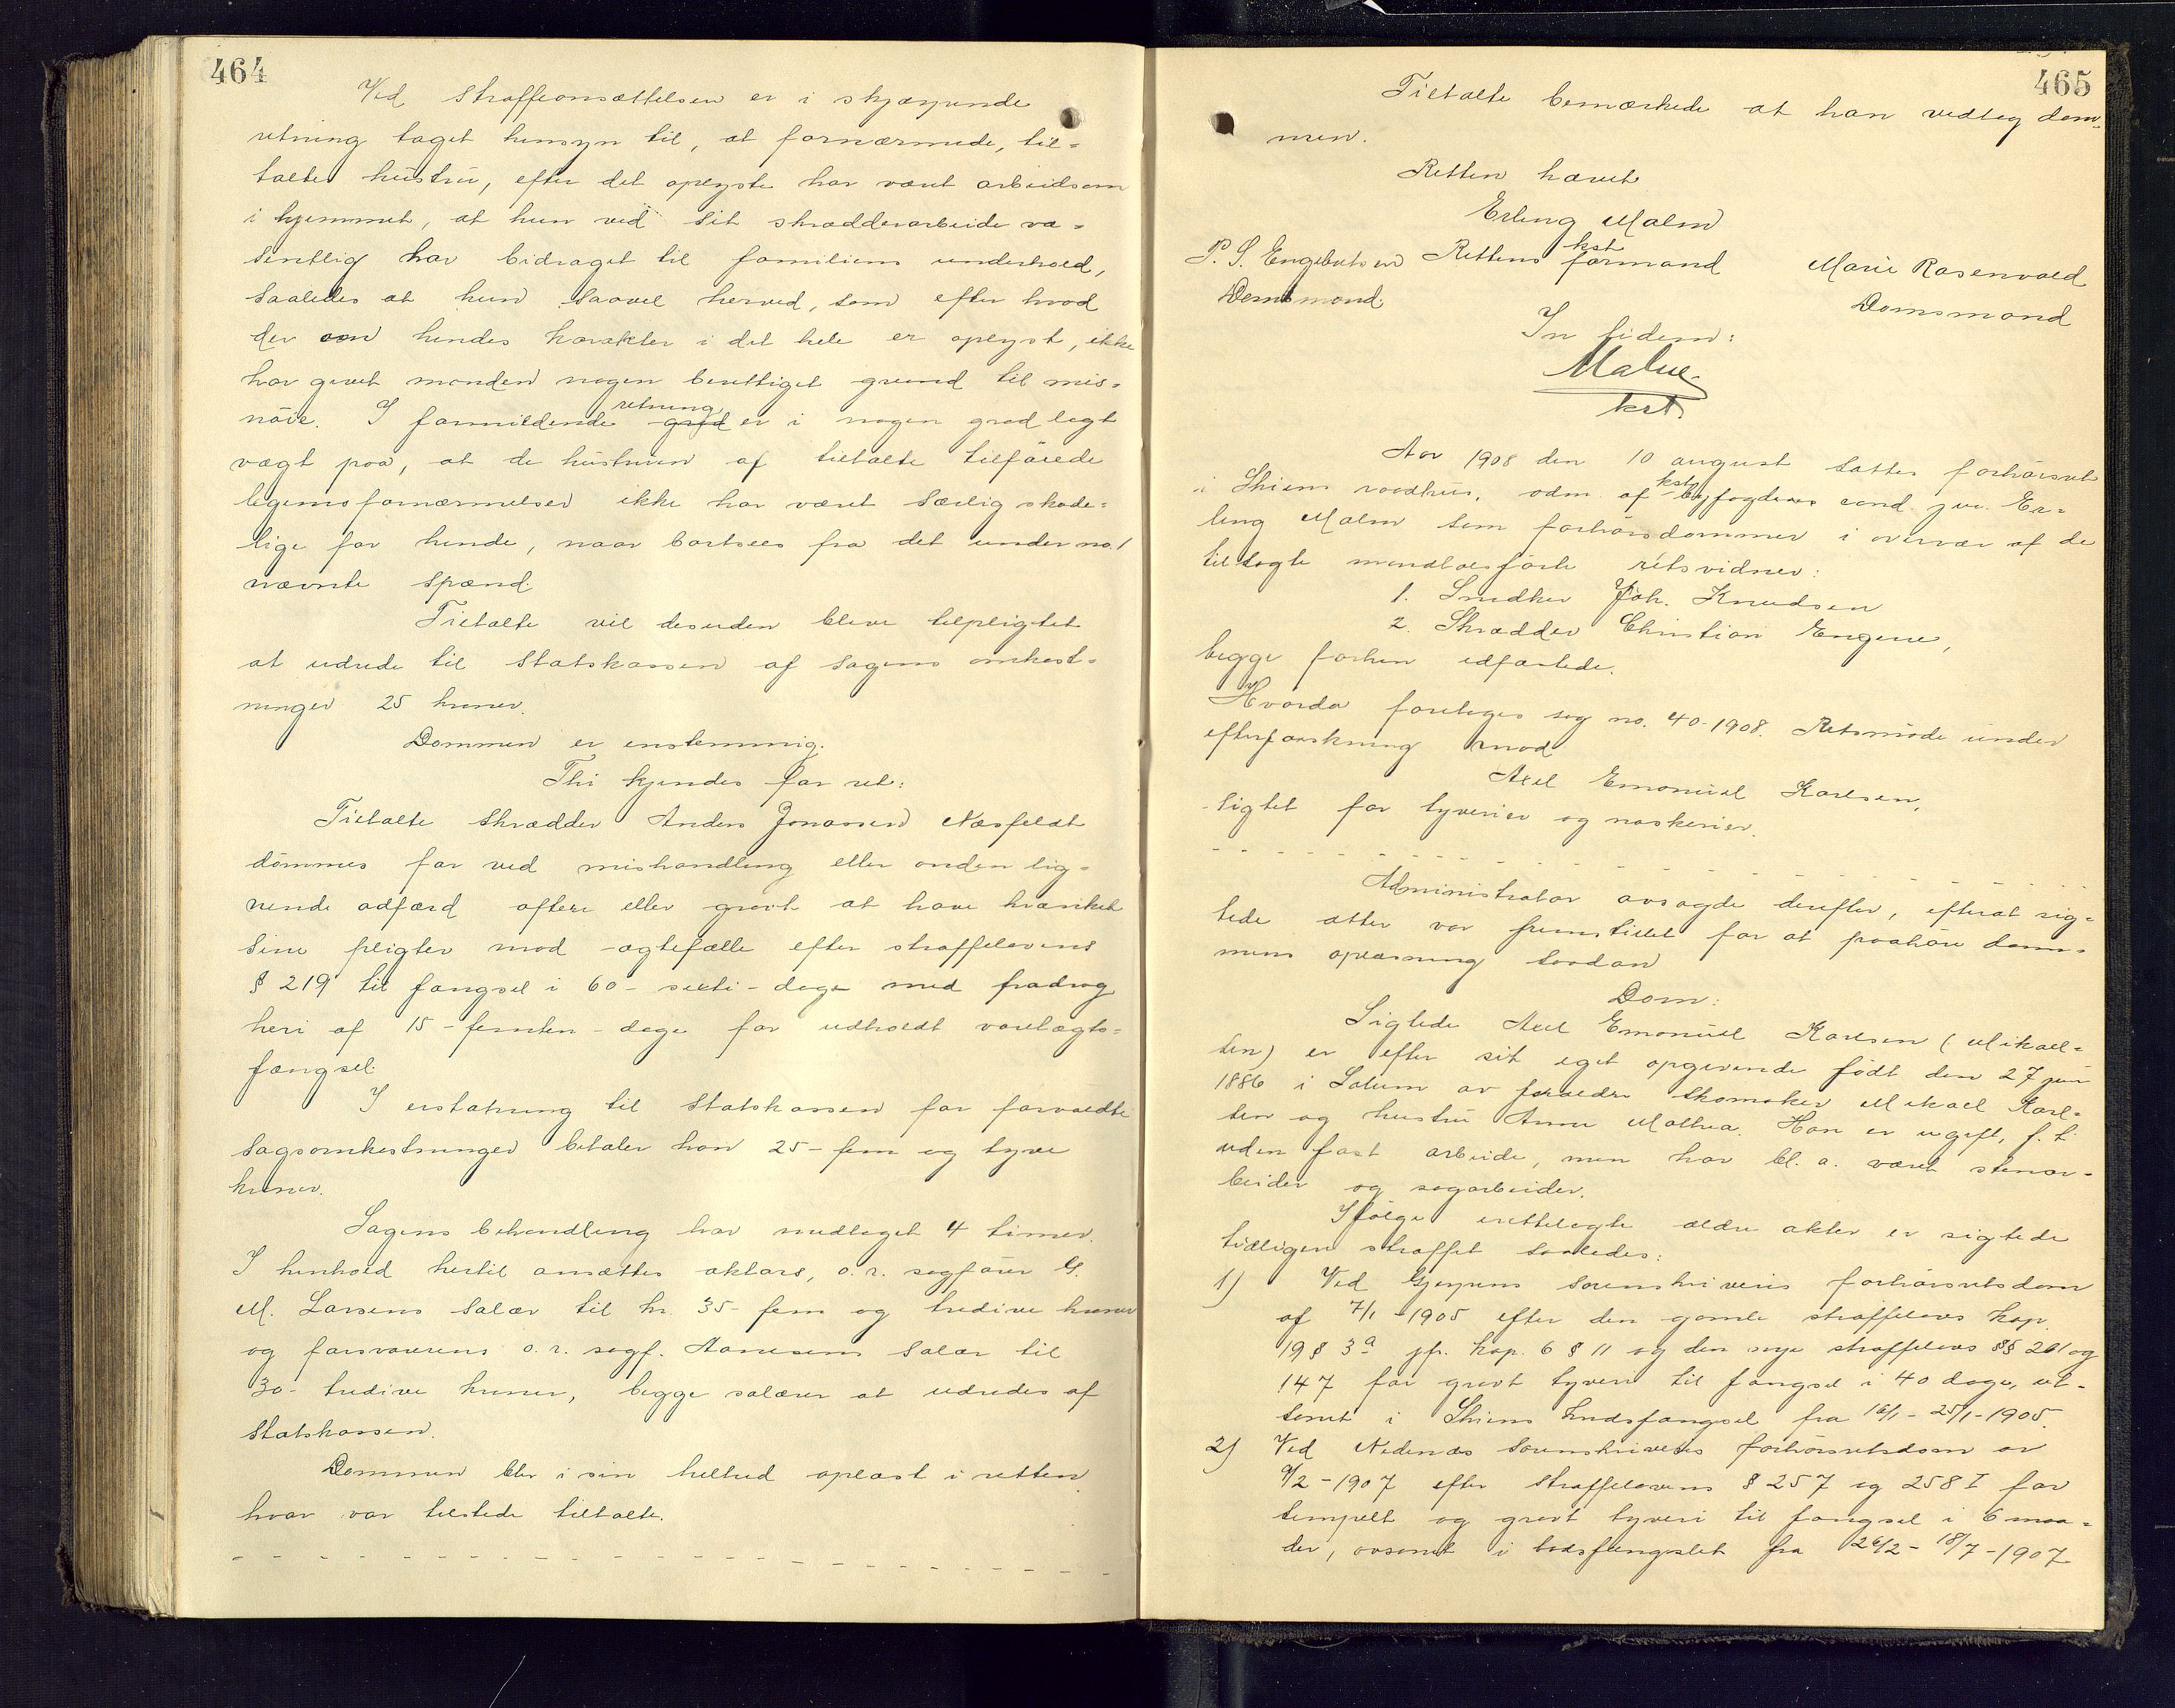 464
Ved straffeansættelsen er i skjærpende
retning taget hensyn til, at fornærmede, til=
taltes hustru, efter det oplyste har været arbeidsom
i hjemmet, at hun ved sit skrædderarbeide væ=
sentlig har bidraget til familiens underhold,
saaledes at hun saavel herved, som efter hvad
der om hendes karakter i det hele er oplyst, ikke
har givet manden nogen berettiget grund til mis=
nöie. I formildende grad retning er i nogen grad lagt
vægt paa, at de hustruen af tiltalte tilföiede
legemsfornærmelser ikke har været særlig skade=
lige for hende, naar bortsees fra det under no. 1
nævnte spænd.
Tiltalte vil desuden blive tilpligtet
at udrede til Statskassen af sagens omkost=
ninger 25 kroner.
Dommen er enstemmig.
Thi kjendes for ret:
Tiltalte skrædder Anders Jonassen Næsfeldt
dömmes for ved mishandling eller anden lig=
nende adfærd oftere eller grovt at have krænket
sine pligter mod ægtefælle efter straffelovens
§ 219 til fængsel i 60 - seksti - dage med fradrag
heri af 15 - femten - dage for udholdt varetægts=
fængsel.
I erstatning til Statskassen for forvoldte
sagsomkostninger betaler han 25 - fem og tyve
kroner.
Sagens behandling har medtaget 4 timer.
I henhold hertil ansættes aktors, o.r. sagförer G.
M. Larsens salær til kr. 35 - fem og tredive kroner
og forsvarerens o.r. sagf. Aanesens salær til
30 - tredive kroner, begge salærer at udredes af
Statskassen.
Dommen blev i sin helhed oplæst i retten
hvor var tilstede tiltalte.
465
Tiltalte bemærkede at han vedtog dom=
men.
Retten hævet
Erling Malm
kst
P. S. Engebretsen Rettens formand Marie Rosenvold
Domsmand. Domsmand
In fidem:
Malm
kst
Aar 1908 den 10 august sattes forhörsret
i Skiens raadhus, adm. af kst byfogden cand. jur. Er=
ling Malm som forhörsdommer i overvær af de
tilsagte mandtalsförte retsvidner:
1. Snedker Joh. Knudsen
2. Skrædder Christian Engene,
begge forhen edfæstede.
Hvorda foretoges sag no. 40-1908. Retsmöde under
efterforskning mod
Axel Emanuel Karlsen,
sigtet for tyverier og naskerier.
Administrator avsagde derefter, efterat sig=
tede atter var fremstillet for at paahöre dom=
mens oplæsning saadan
Dom:
Sigtede Axel Emanuel Karlsen (Mikael=
sen) er efter sit eget opgivende födt den 27 juni
1886 i Solum av forældre skomaker Mikael Karl=
sen og hustru Anne Mathea. Han er ugift, f. t.
uden fast arbeide, men har bl. a. været stenar=
beider og sagarbeider.
Ifölge irettelagte ældre akter er sigtede
tidligere straffet saaledes:
1) Ved Gjerpens sorenskriveris forhörsretsdom
af 7/1 - 1905 efter den gamle straffelovs kap.
19 § 3 a jfr. kap. 6 § 11 og den nye straffelovs §§ 261 og
147 for grovt tyveri til fængsel i 40 dage, ut=
sonet i Skiens kredsfængsel fra 16/1 - 25/1 - 1905.
2) Ved Nedenæs sorenskriveris forhörsretsdom av
9/2 - 1907 efter straffelovens § 257 og 258 I for
simpelt og grovt tyveri til fængsel i 6 maa=
der, avsonet i bodsfængslet fra 26/2 - 18/7 - 1907